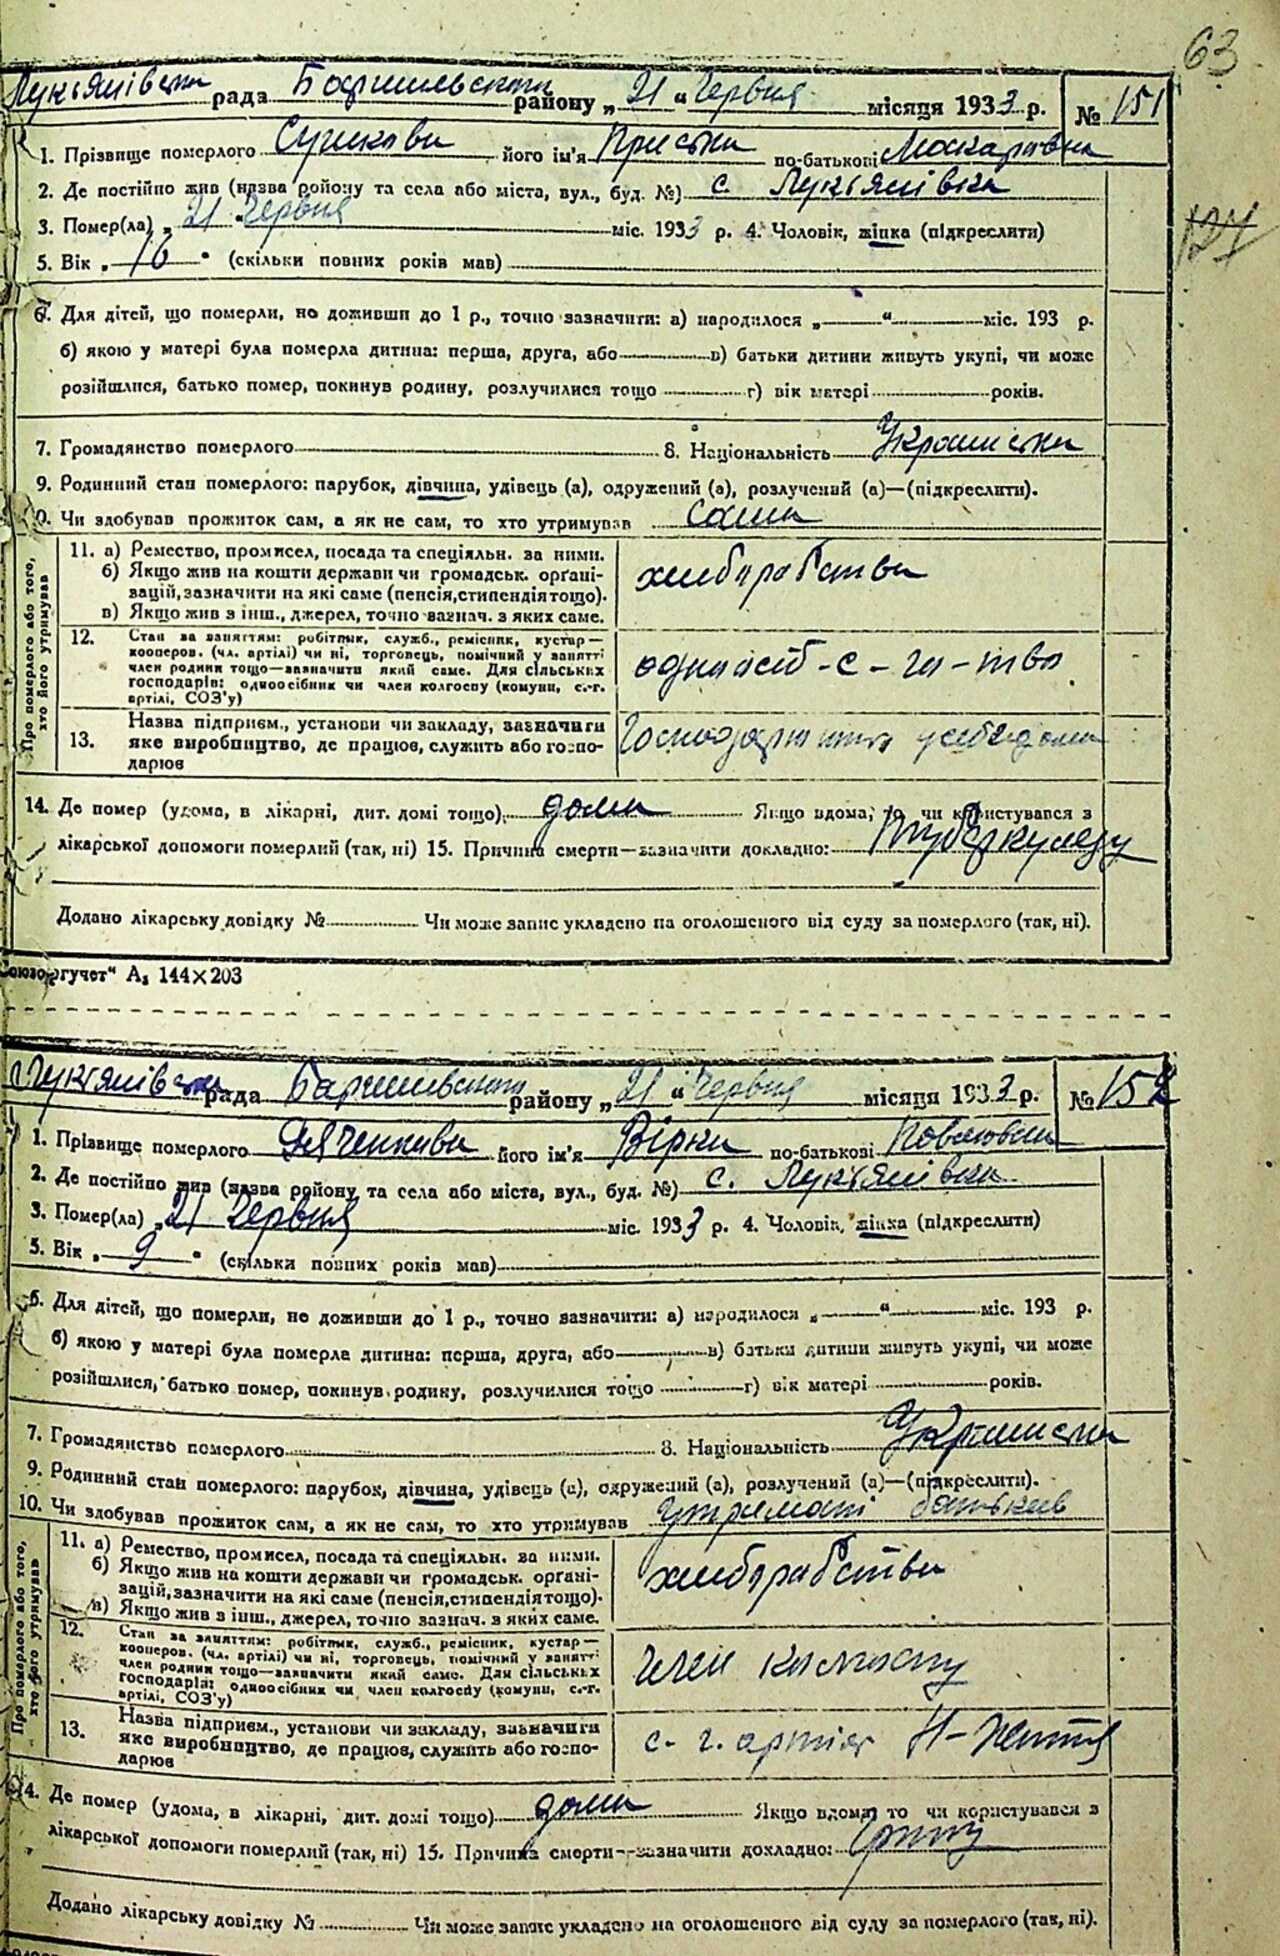 63
Лукянівська рада Баришевського району „21“ Червня місяця 1933 р. № 151
1. Прізвище померлого його ім'я Пріська по-батькові Макаровна
2. Де постійно жив (назва району та села або міста, вул., буд. №) с. Лук'янівка
3. Помер(ла) „21 Червня міс. 1933 р. 4. Чоловік, жінка (підкреслити)
127
5. Вік „16“ (скільки повних років мав)
6. Для дітей, що померли, не доживши до 1 р., точно зазначити: а) народилося „ “ міс. 193 р.
б) якою у матері була померла дитина: перша, друга, або в) батьки дитини живуть укупі, чи може
розійшлися, батько помер, покинув родину, розлучилися тощо г) вік матері років.
7. Громадянство померлого 8. Національність Українська
9. Родинний стан померлого: парубок, дівчина, удівець (а), одружений (а), розлучений (а)—(підкреслити).
0. Чи здобував прожиток сам, а як не сам, то хто утримував Сама
Про померлого або того, хто його утримував
11. а) Ремество, промисел, посада та спеціяльн. за ними.
б) Якщо жив на кошти держави чи громадськ. орґані-
зацій, зазначити на які саме (пенсія, стипендія тощо).
в) Якщо жив з інш., джерел, точно зазнач. з яких саме.
хліборобство
12. Стан за заняттям: робітник, служб., ремісник, кустар—
кооперов. (чл. артілі) чи ні, торговець, помічний у занятті
член родини тощо—зазначити який саме. Для сільських
господарів: одноосібник чи член колгоспу (комуни, с.-г.
артілі, СОЗ'у)
13. Назва підприєм., установи чи закладу, зазначити
яке виробництво, де працює, служить або госпо-
дарює
14. Де помер (удома, в лікарні, дит. домі тощо) дома Якщо вдома, то чи користувався з
лікарської допомоги померлий (так, ні) 15. Причина смерти—зазначити докладно: туберкульозу
Додано лікарську довідку № Чи може запис укладено на оголошеного від суду за померлого (так, ні).
Союзоргучет“ А₅ 144×203
Лукянівська рада Баришевського району „21“ Червня місяця 1933 р. № 152
1. Прізвище померлого Дяченкова його ім'я Вірка по-батькові Павловна
2. Де постійно жив (назва району та села або міста, вул., буд. №) с. Лук'янівка
3. Помер(ла) „21 Червня міс. 1933 р. 4. Чоловік, жінка (підкреслити)
5. Вік „9“ (скільки повних років мав)
6. Для дітей, що померли, не доживши до 1 р., точно зазначити: а) народилося „ “ міс. 193 р.
б) якою у матері була померла дитина: перша, друга, або в) батьки дитини живуть укупі, чи може
розійшлися, батько помер, покинув родину, розлучилися тощо г) вік матері років.
7. Громадянство померлого 8. Національність Українська
9. Родинний стан померлого: парубок, дівчина, удівець (а), одружений (а), розлучений (а)—(підкреслити).
10. Чи здобував прожиток сам, а як не сам, то хто утримував батьків
Про померлого або того, хто його утримував
11. а) Ремество, промисел, посада та спеціяльн. за ними.
б) Якщо жив на кошти держави чи громадськ. орґані-
зацій, зазначити на які саме (пенсія, стипендія тощо).
в) Якщо жив з інш., джерел, точно зазнач. з яких саме.
хліборобство
12. Стан за заняттям: робітник, служб., ремісник, кустар—
кооперов. (чл. артілі) чи ні, торговець, помічний у занятті
член родини тощо—зазначити який саме. Для сільських
господарів: одноосібник чи член колгоспу (комуни, с.-г.
артілі, СОЗ'у)
член колгоспу
13. Назва підприєм., установи чи закладу, зазначити
яке виробництво, де працює, служить або госпо-
дарює
с. г. артіль Н-Життя
14. Де помер (удома, в лікарні, дит. домі тощо) дома Якщо вдома, то чи користувався з
лікарської допомоги померлий (так, ні) 15. Причина смерти—зазначити докладно: Грипу
Додано лікарську довідку № Чи може запис укладено на оголошеного від суду за померлого (так, ні).